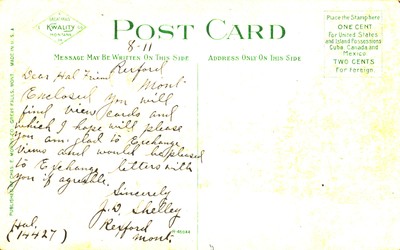 KWALITY
MONTANA
POST CARD
MESSAGE MAY BE WRITTEN ON THIS SIDE
ADDRESS ONLY ON THIS SIDE
Place the Stamp here
ONE CENT
For United States
and Island Possessions
Cuba, Canada and
Mexico
TWO CENTS
For Foreign.
8-11
Rexford
Mont.
Dear Hal Friend
Enclosed you will
find view cards and
which I hope will please
you am glad to Exchange
views and would be pleased
to Exchange letters with
you if agreable.
Sincerely
J.D. Shelley
Rexford
Mont.
Hal.
14427)
GREAT FALLS, MONT. MADE IN U.S.A.